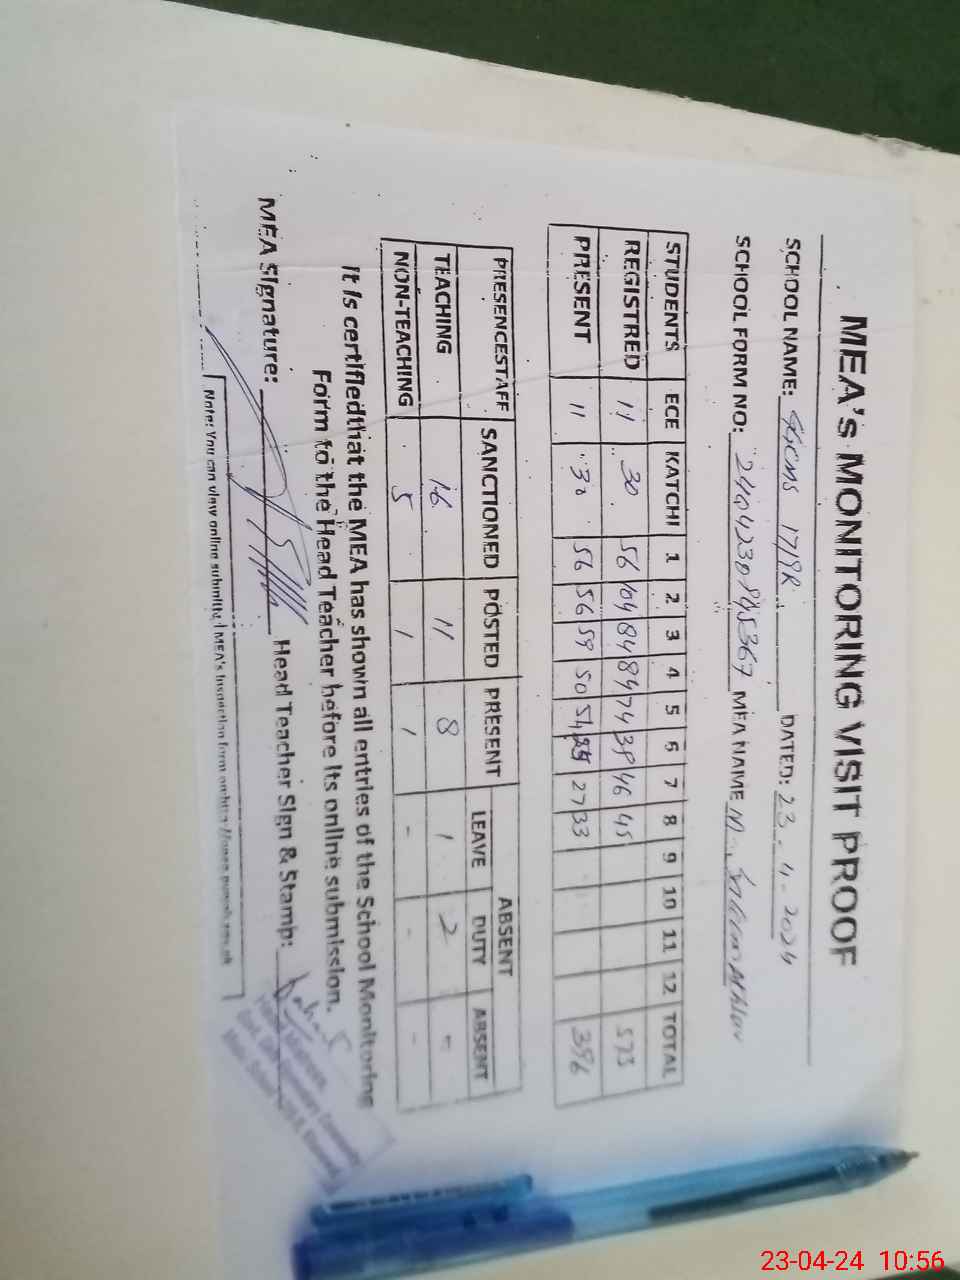 MEA's MONITORING VISIT PROOF
SCHOOL NAME: 17/9R DATED: 23.4.2024
SCHOOL FORM NO: MEA NAME M.
STUDENTS ECE KATCHI 1 2 3 4 5 6 7 8 9 10 11 12 TOTAL
REGISTRED 11 30 56 104 84 84 74 38 46 45 573
PRESENT 11 30 56 56 59 50 54 27 33 396
PRESENCESTAFF SANCTIONED POSTED PRESENT ABSENT
LEAVE DUTY ABSENT
TEACHING 16 11 8 1 2 -
NON-TEACHING 5 1 1 - - -
It is certifiedthat the MEA has shown all entries of the School Monitoring
Form to the Head Teacher before its online submission.
MEA Signature: Head Teacher Sign & Stamp:
Head Mistress
Note: You can view online submitted MEA's Inspection form on
23-04-24 10:56